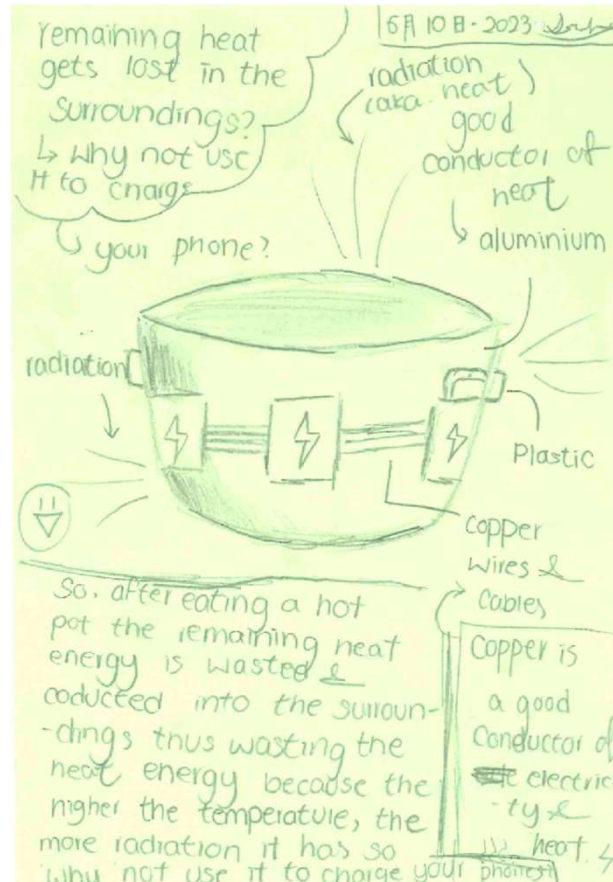 remaining heat
gets lost in the
surroundings?
↳ why not use
it to charge
your phone?
6月10日·2023
radiation
(aka. heat)
good
conductor of
heat
↳ aluminium
radiation
Plastic
copper
wires &
cables
So, after eating a hot
pot the remaining heat
energy is wasted &
coducted into the surroun-
-dings thus wasting the
heat energy because the
higher the temperature, the
more radiation it has so
why not use it to charge your phones?
Copper is
a good
conductor of
electric
-ty &
heat.